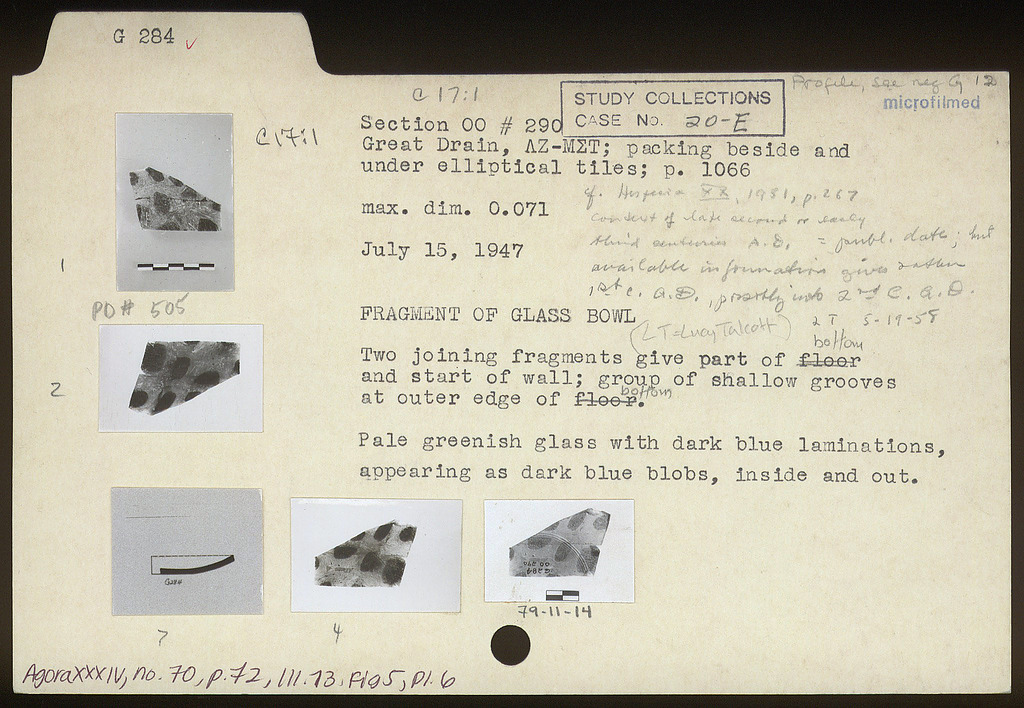 G 284 ✓
Profile, see neg G 12
microfilmed
C 17:1
STUDY COLLECTIONS
CASE NO. 20-E
C 17:1
Section OO # 290
Great Drain, ΛΖ-ΜΣΤ; packing beside and
under elliptical tiles; p. 1066
max. dim. 0.071
July 15, 1947
cf. Hesperia XX, 1951, p. 267
context of late second or early
third centuries A.D. = publ. date; but
available information gives rather
1st c. A.D., possibly into 2nd C. A.D.
LT 5-19-58
(LT = Lucy Talcott)
FRAGMENT OF GLASS BOWL
bottom
Two joining fragments give part of floor
and start of wall; group of shallow grooves
bottom
at outer edge of floor.
Pale greenish glass with dark blue laminations,
appearing as dark blue blobs, inside and out.
1
PD# 505
2
G284
OO 290
G 284
79-11-14
7
4
Agora XXXIV, no. 70, p. 72, Ill. 13, Fig 5, Pl. 6